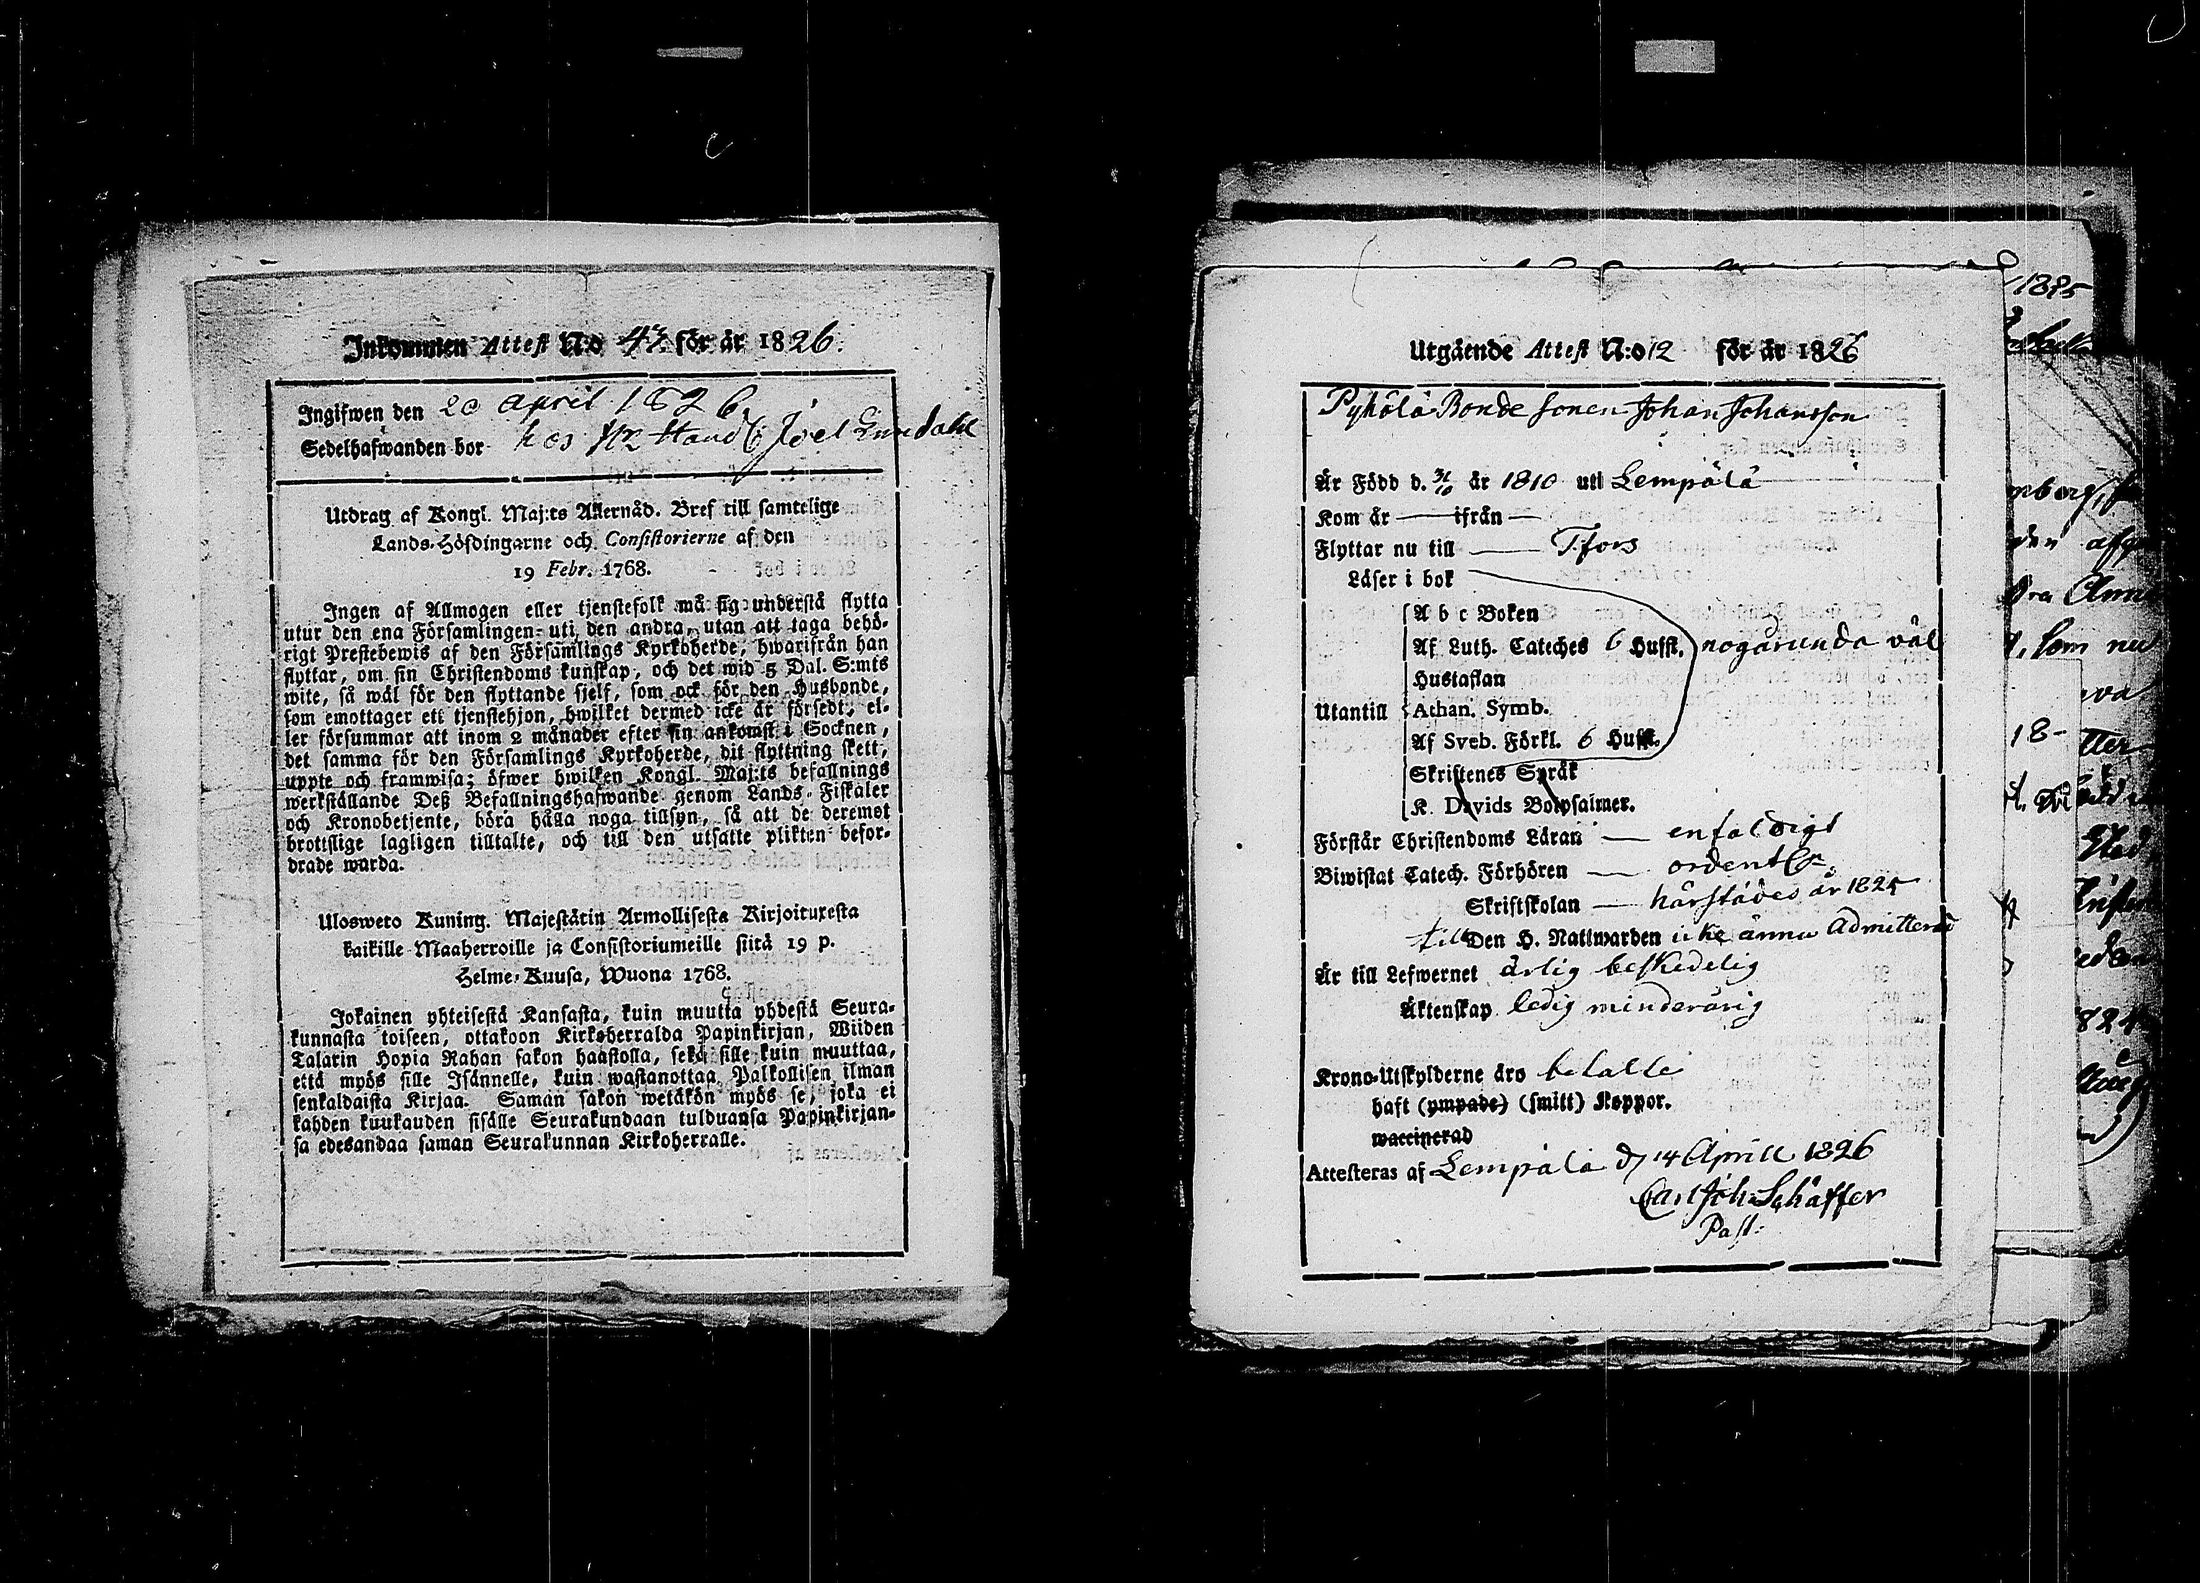 Inkommen Attest N:o 43 för år 1826.
Ingifwen den 20 april 1826.
Sedelhafwanden bor hos Hr Handl Joel Lundahl
Utdrag af Kongl. Maj:ts Allernåd. Bref till samtelige
Lands-Höfdingarne och Consistorierne af den
19 Febr. 1768.
Ingen af Allmogen eller tjenstefolk må sig understå flytta
utur den ena Församlingen uti den andra, utan att taga behö-
rigt Prestebewis af den Församlings Kyrkoherde, hwarifrån han
flyttar, om sin Christendoms kunskap, och det wid 5 Dal. S:mts
wite, så wäl för den flyttande sjelf, som ock för den Husbonde,
som emottager ett tjenstehjon, hwilket dermed icke är försedt, el-
ler försummar att inom 2 månader efter sin ankomst i Socknen,
det samma för den Församlings Kyrkoherde, dit flyttning skett,
uppte och framwisa; öfwer hwilken Kongl. Maj:ts befallnings
werkställande Deß Befallningshafwande genom Lands-Fiskaler
och Kronobetjente, böra hålla noga tillsyn, så att de deremot
brottslige lagligen tilltalte, och till den utsatte plikten befor-
drade warda.
Ulosweto Kuning. Majestätin Armollisesta Kirjoituxesta
kaikille Maaherroille ja Consistoriumeille siitä 19 p.
Helme-Kuusa, Wuona 1768.
Jokainen yhteisestä Kansasta, kuin muutta yhdestä Seura-
kunnasta toiseen, ottakoon Kirkoherralda Papinkirjan, Wiiden
Talarin Hopia Rahan sakon haastolla, sekä sille kuin muuttaa,
että myös sille Isännelle, kuin wastanottaa Palkollisen ilman
senkaldaista Kirjaa. Saman sakon wetäkön myös se, joka ei
kahden kuukauden sisälle Seurakundaan tulduansa Papinkirjan-
sa edesandaa saman Seurakunnan Kirkoherralle.
Utgående Attest N:o 12 för år 1826
Pyhölä Bonde sonen Johan Johansson
Är Född d. 31/10 år 1810 uti Lempälä
Kom år — ifrån —
Flyttar nu till — T.fors
Läser i bok
A b c Boken
Af Luth. Cateches 6 Hufst. nogarunda väl
Hustaflan
Utantill Athan. Symb.
Af Sveb. Förkl. 6 Hufst.
Skriftenes Språk
K. Davids Botpsalmer.
Förstår Christendoms Läran — enfaldigt
Biwistat Catech. Förhören — ordentl.
Skriftskolan — härstädes år 1825
till Den H. Nattwarden icke ännu admitterad
Är till Lefwernet ärlig beskedelig
Äktenskap ledig minderårig
Krono-Utskylderne äro betalte
haft (ympade) (smitt) Koppor.
waccinerad
Attesteras af Lempälä d. 14 Aprill 1826
Carl Joh. Schäffer
Past: